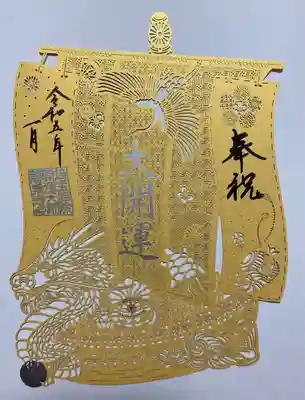 奉祝
開運
令和五年
一月